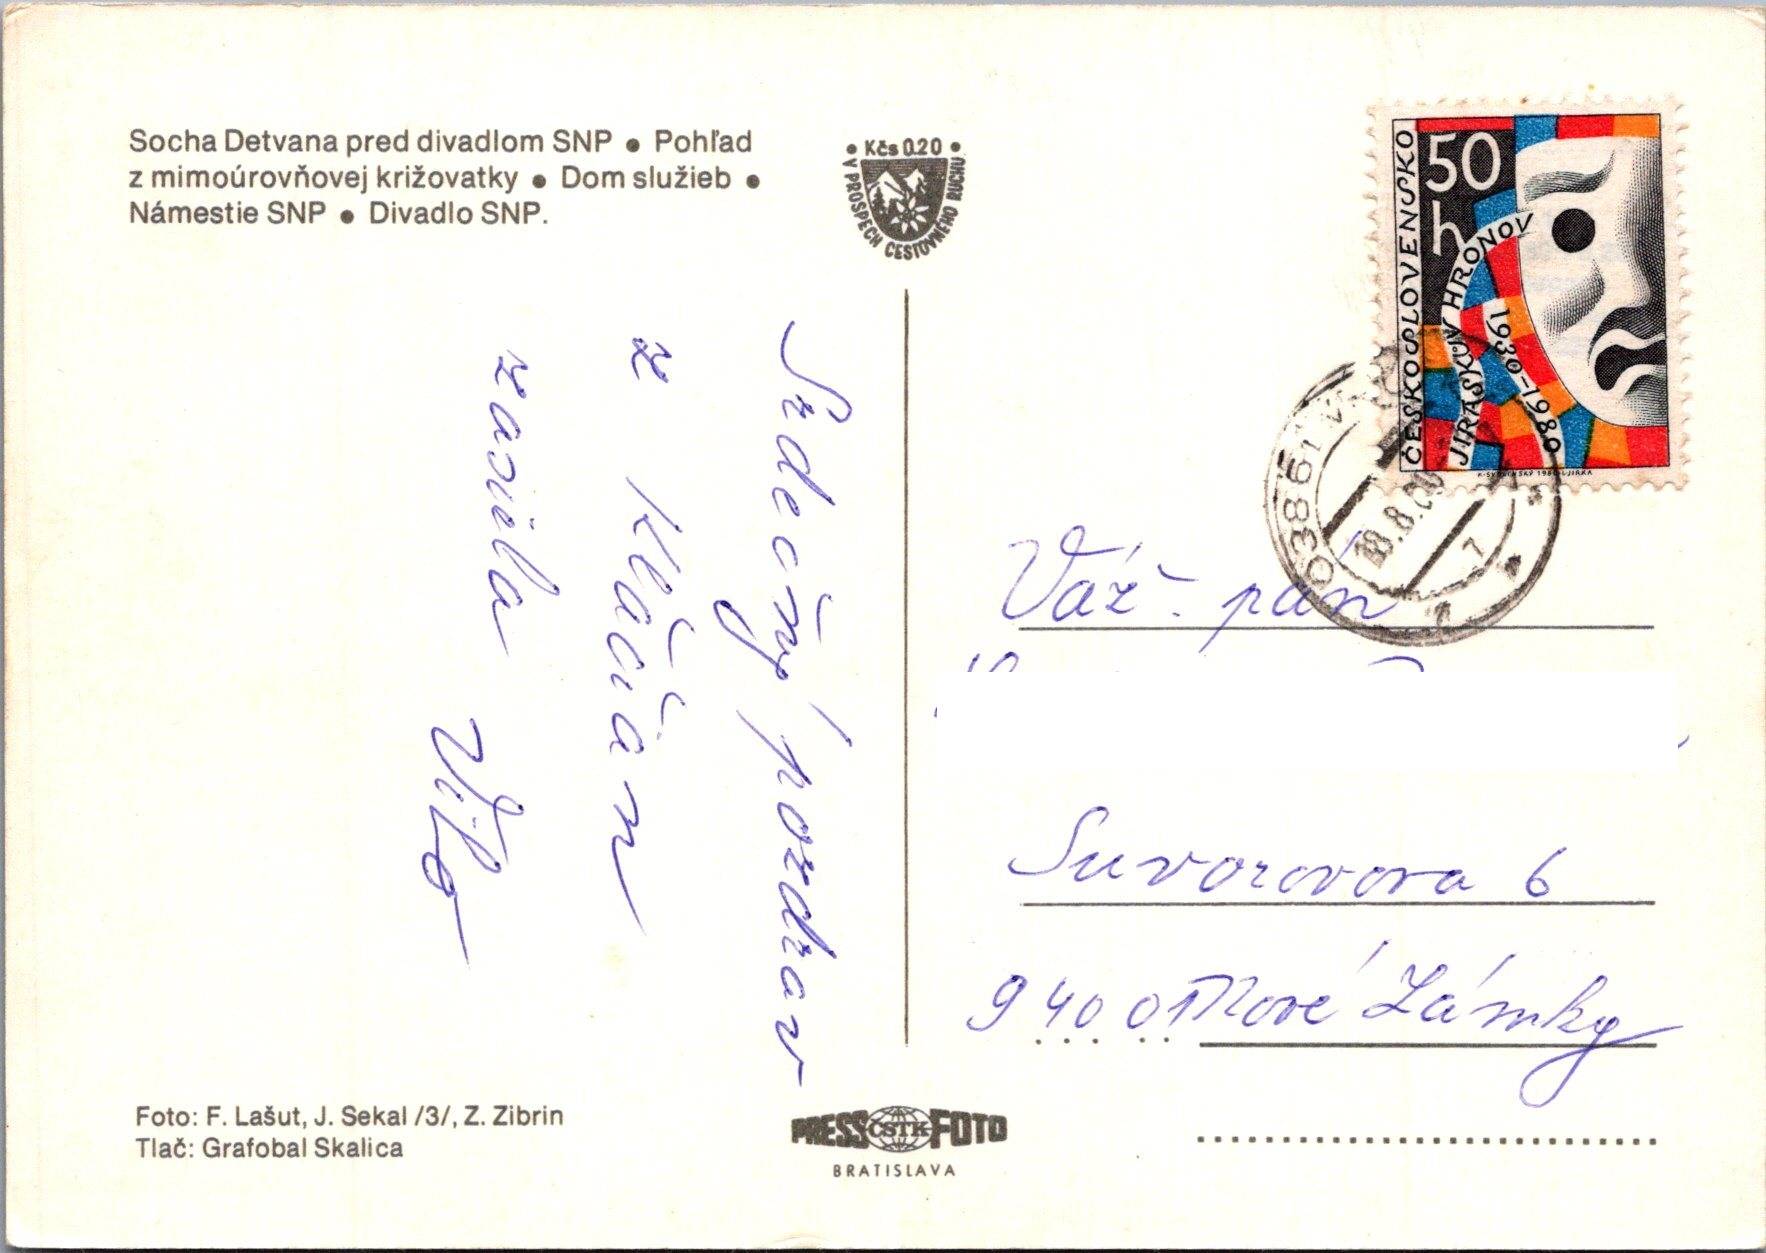 Socha Detvana pred divadlom SNP • Pohľad
z mimoúrovňovej križovatky • Dom služieb •
Námestie SNP • Divadlo SNP.
• Kčs 0.20 •
V PROSPECH CESTOVNÉHO RUCHU
ČESKOSLOVENSKO
50
h
JIRÁSKŮV HRONOV
1930-1980
03861 V
8.80
Srdečný pozdrav
z Kláčian
zasiela
Váž. pán
Suvorovova 6
940 01 Nové Zámky
Foto: F. Lašut, J. Sekal /3/, Z. Zibrin
Tlač: Grafobal Skalica
PRESS ČSTK FOTO
BRATISLAVA